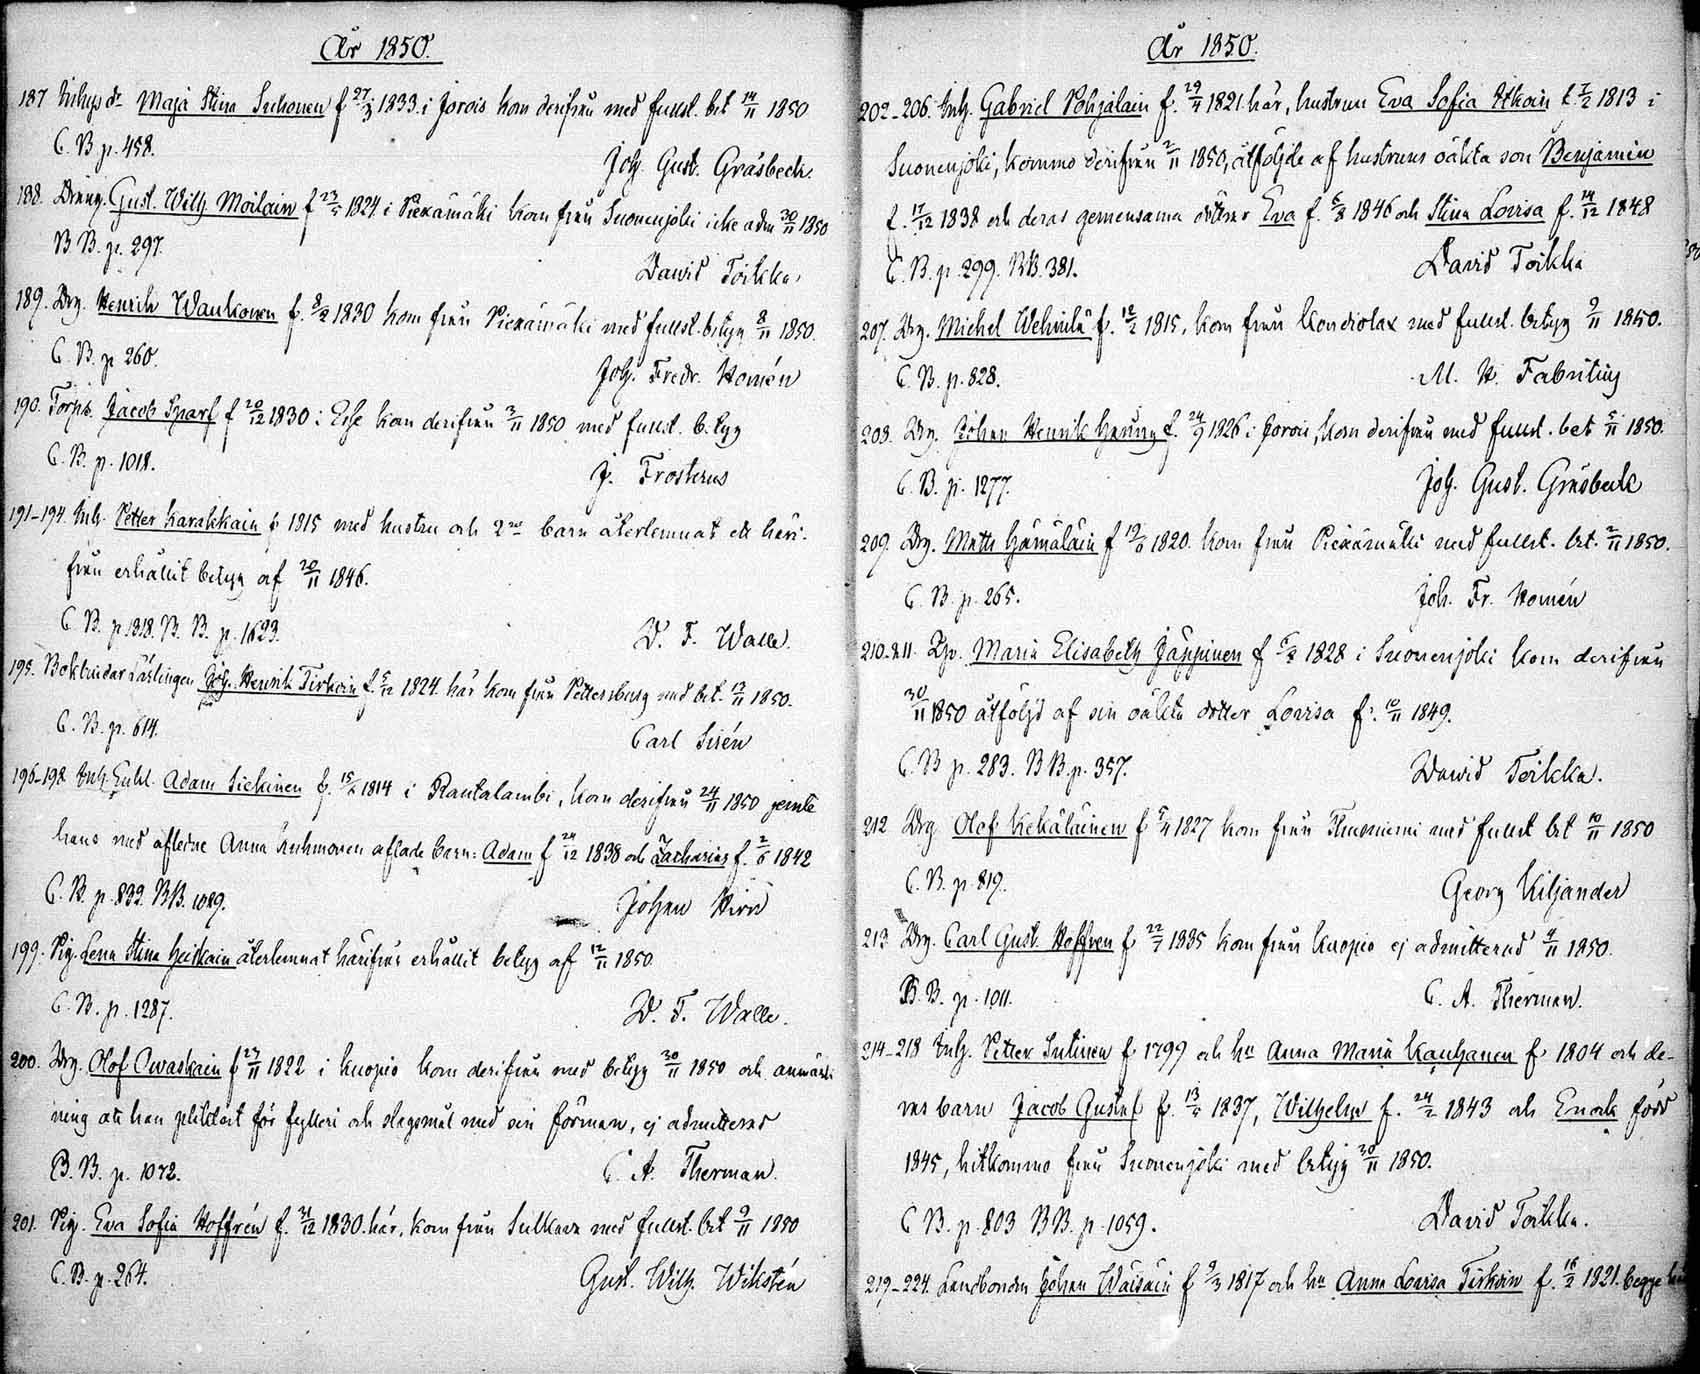 År 1850.
187 Inhys dr Maja Stina Suhonen f 27/3 1833 i Jorois kom derifrån med fullst. bet 14/11 1850
C. B. p. 458.
Joh. Gust. Gråsbeck.
188. Dreng. Gust. Wilh. Moilain f 23/5 1824 i Piexämäki kom från Suonenjoki icke adm 30/11 1850
B B. p. 297.
David Toikka.
189. Drg. Henrik Waukonen f. 8/2 1830 kom från Piexämäki med fullst. betyg 8/11 1850.
C. B. p 260.
Joh. Fredr. Homén
190. Torp. Jacob Sparf f 20/12 1830 i Esse kom derifrån 3/11 1850 med fullst. betyg
C. B. p. 1018.
J. Frosterus
191-194. Inh. Petter Karakkain f 1815 med hustru och 2ne barn återlemnat ett häri-
från erhållit betyg af 20/11 1846.
C. B. p. 1318. B. B. p. 1623.
W. F. Walle.
195. Bokbindar Lärlingen Joh. Henrik Tirkoin f. 5/12 1824. här kom från Pettersburg med bet. 13/11 1850.
C. B. p. 614.
Carl Sirén
196-198 Inh. Enkl. Adam Siekinen f. 15/2 1814 i Rautalambi, kom derifrån 24/11 1850 jemte
hans med afledne Anna Huhmonen aflade barn: Adam f 24/12 1838 och Zacharias f. 2/6 1842
C. B. p. 832. BB. 1089.
Johan Hirn
199. Pig. Lena Stina Heiskain återlemnat härifrån erhållit betyg af 12/11 1850.
C. B. p. 1287.
W. F. Walle.
200. Drg. Olof Owaskain f 27/11 1822 i Kuopio kom derifrån med betyg 30/11 1850 och anmärk-
ning att han pliktat för fylleri och slagsmål med sin förman, ej admitterad
B. B. p. 1072.
C. A. Therman.
201. Pig. Eva Sofia Hoffrén f. 31/12 1830. här, kom från Sulkava med fullst. bet 9/11 1850
C. B. p. 264.
Gust. Wilh. Wikstén
År 1850.
202-206. Inh. Gabriel Pohjalain f. 29/4 1821. här, hustrun Eva Sofia Itkoin f. 7/2 1813 i
Suonenjoki, kommo derifrån 2/11 1850, åtföljde af hustruns oäkta son Benjamin
f. 17/12 1838 och deras gemensama döttrar Eva f. 5/8 1846 och Stina Lovisa f. 14/12 1848
C. B. p. 299. BB. 381.
David Toikka
207. Drg. Michel Wehvilä f. 12/2 1815, kom från Kondiolax med fullst. betyg 9/11 1850.
C. B. p. 828.
M. H. Fabritius
208. Drg. Johan Henrik f. 24/9 1826 i Jorois, kom derifrån med fullst. bet 5/11 1850.
C. B. p. 1277.
Joh. Gust. Gråsbeck
209. Drg. Matts Hämäläin f 1820. kom från Piexämäki med fullst. bet. 2/11 1850.
C. B. p. 265.
Joh. Fr. Homén
210-211. Maria Elisabeth Jäppinen f 1828 i Suonenjoki kom derifrån
30/11 1850 åtföljd af sin oäkta dotter Lovisa f. 10/11 1849.
C. B p. 283. BB. p. 357.
David Toikka.
212 Drg Olof Kekäläinen f 5/4 1827 kom från med fullst bet 10/11 1850
C. B. p. 819.
Georg Kiljander
213. Drg. Carl Gust. Hoffren f 22/7 1835 kom från Kuopio ej admitterad 4/11 1850.
B. B. p. 1011.
C. A. Therman.
214-218 Inh. Petter Sutinen f. 1799 och hu Anna Maria Kauhanen f. 1804 och de-
ras barn Jacob Gustaf f. 13/5 1837, Wilhelm f. 24/2 1843 och Enok född
1845, hitkommo från Suonenjoki med betyg 20/11 1850.
C B. p. 803 BB. p. 1059.
David Toikka.
219-224. Landbonden Johan Wäisäin f 9/3 1817 och hu Anna Lovisa Tirkoin f. 16/2 1821. begge